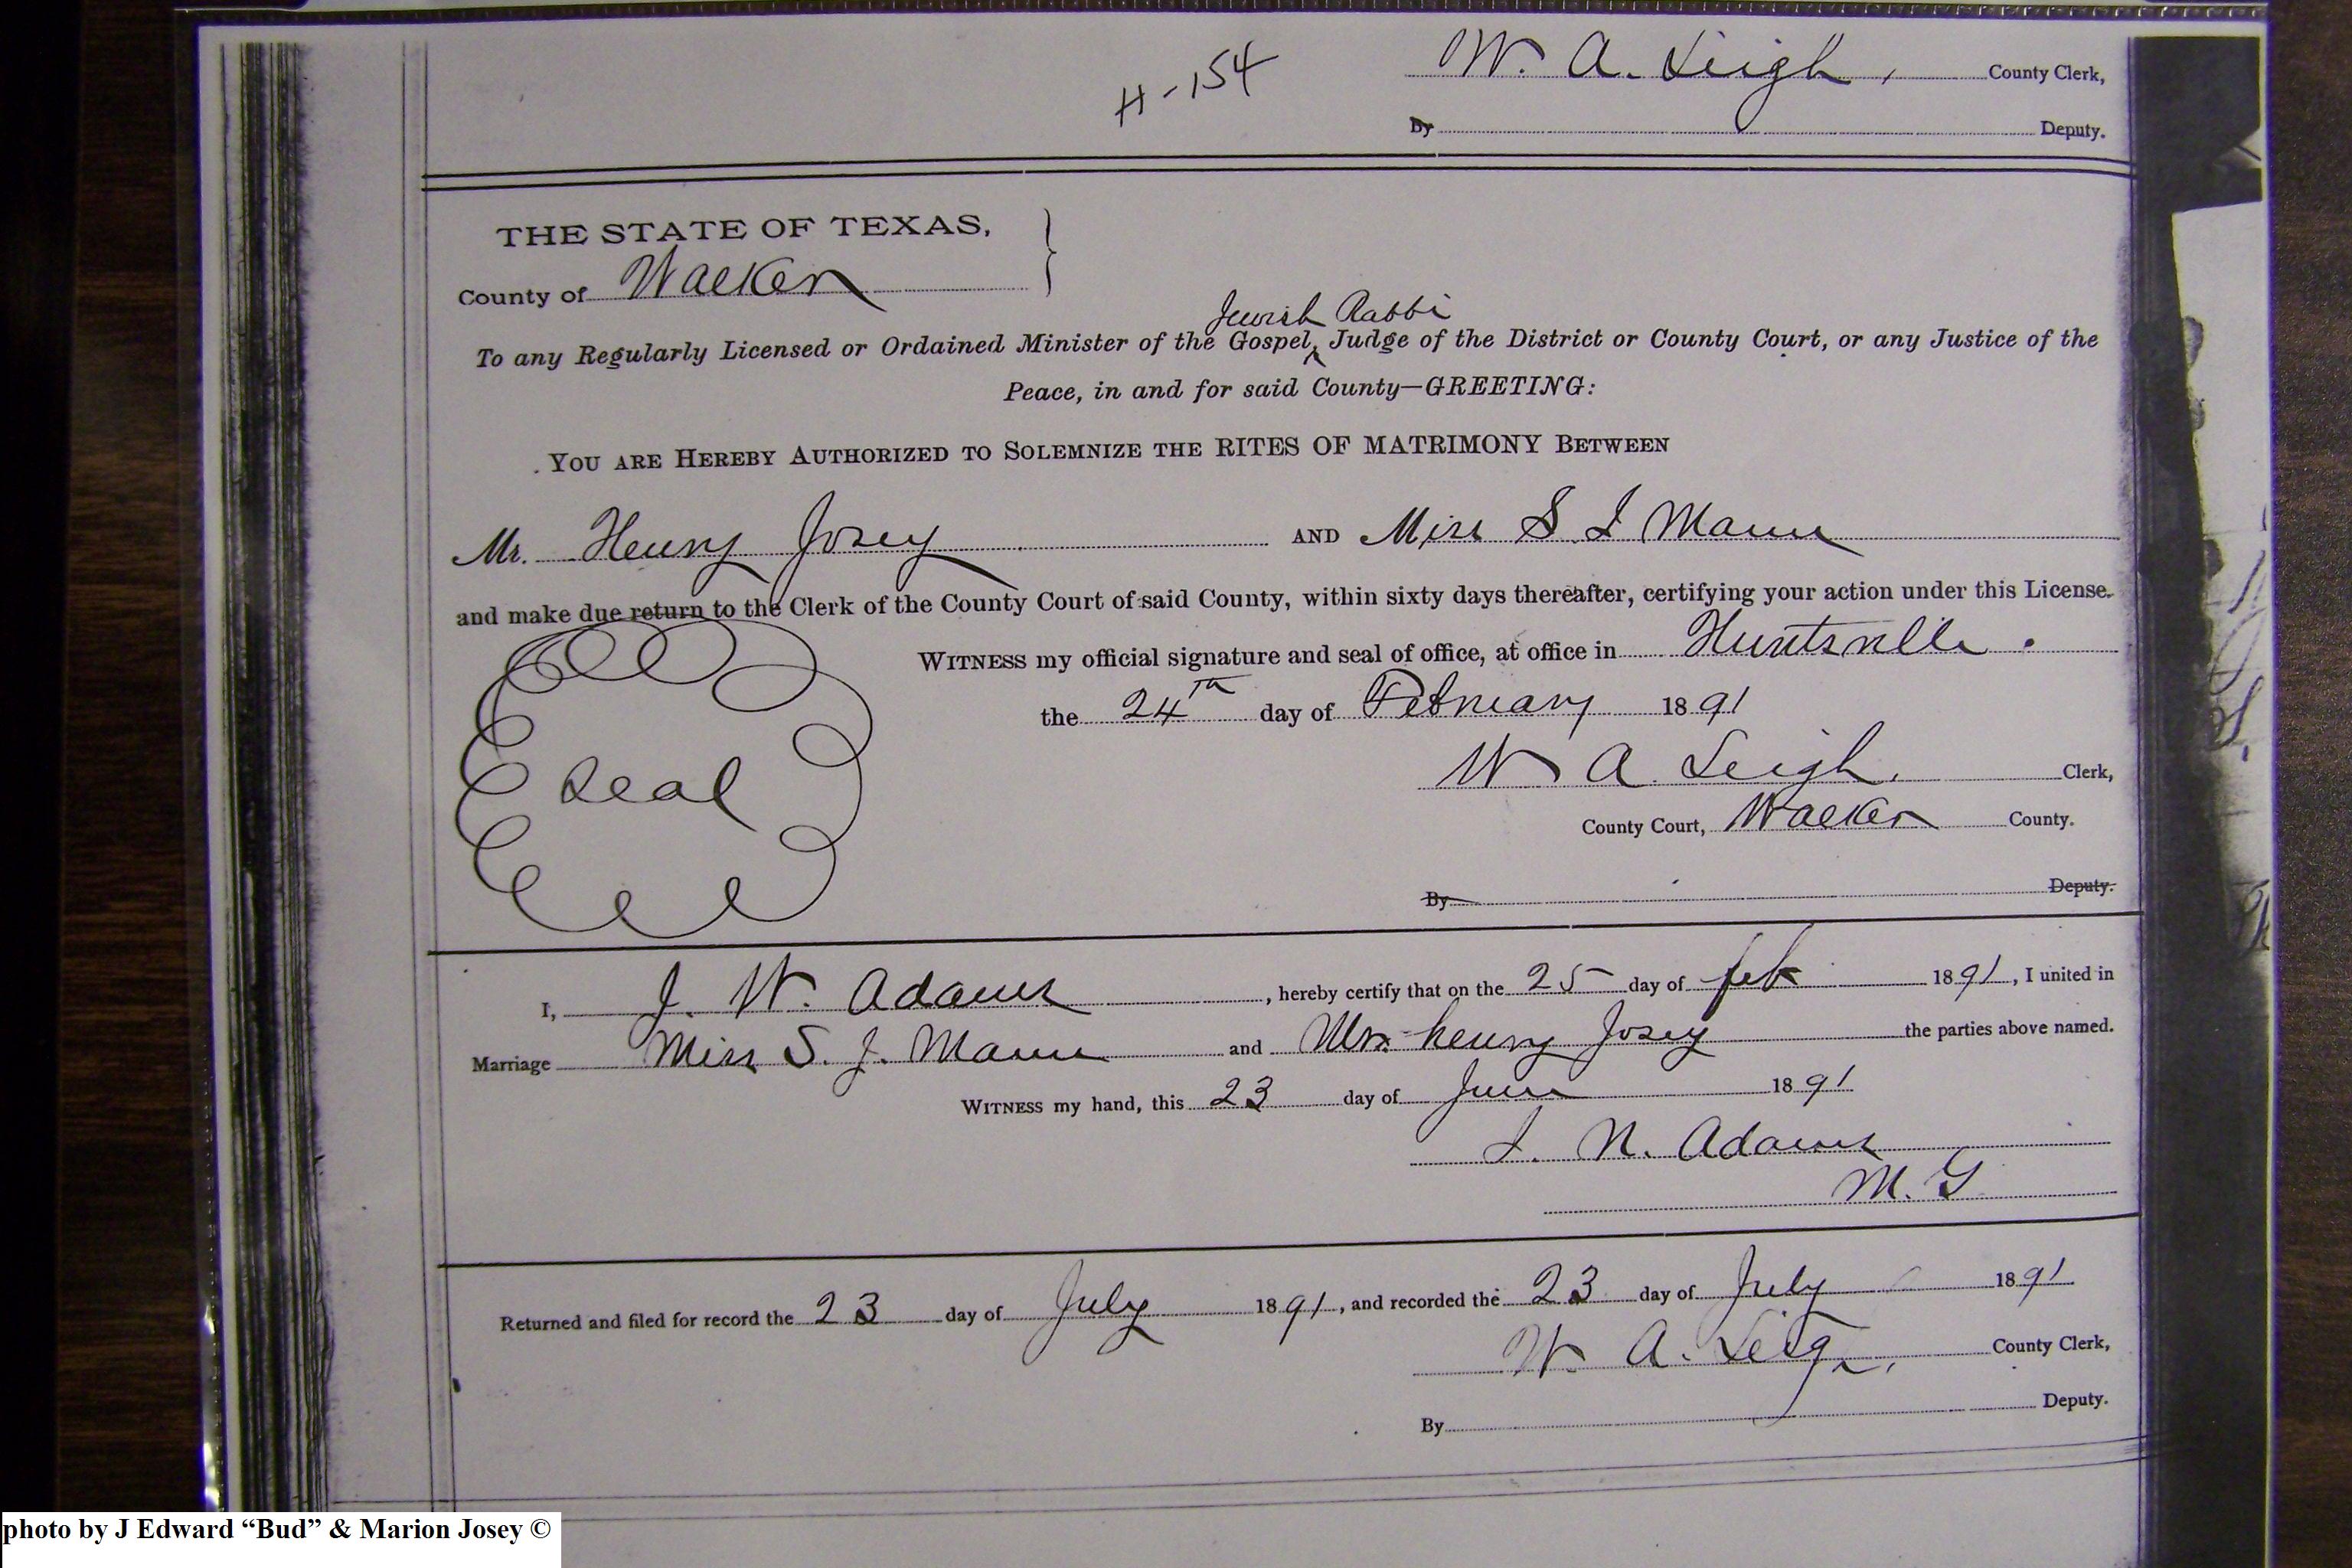 H-154
W. A. Leigh, County Clerk,
By Deputy.
THE STATE OF TEXAS,
County of Walker
Jewish Rabbi
To any Regularly Licensed or Ordained Minister of the Gospel, Judge of the District or County Court, or any Justice of the
Peace, in and for said County—GREETING:
YOU ARE HEREBY AUTHORIZED TO SOLEMNIZE THE RITES OF MATRIMONY BETWEEN
Mr. Henry Josey AND Miss S. J Mann
and make due return to the Clerk of the County Court of said County, within sixty days thereafter, certifying your action under this License.
WITNESS my official signature and seal of office, at office in Huntsville.
the 24th day of February 1891
Seal
W A. Leigh. Clerk,
County Court, Walker County.
By Deputy.
I, J. W. Adams, hereby certify that on the 25 day of feb 1891, I united in
Marriage Miss S. J. Mann and Mr. henry Josey the parties above named.
WITNESS my hand, this 23 day of June 1891
J. N. Adams
M. G
Returned and filed for record the 23 day of July 1891, and recorded the 23 day of July 1891
W. A. Leigh, County Clerk,
By Deputy.
photo by J Edward “Bud” & Marion Josey ©